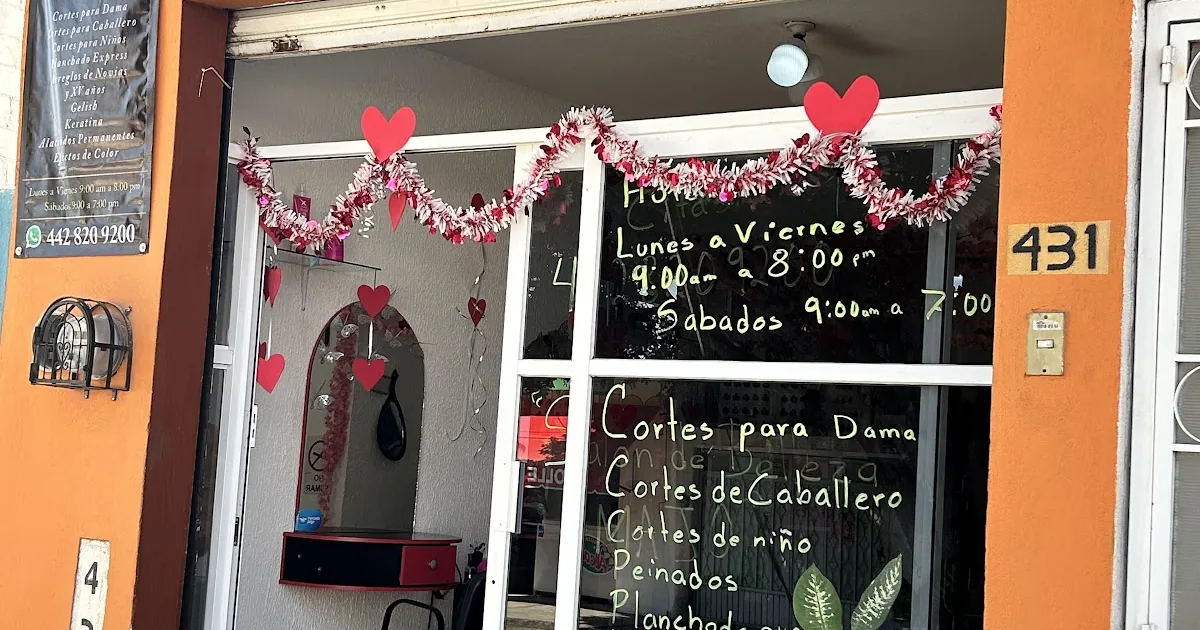 Cortes para Dama
Cortes para Caballero
Cortes para Niños
Planchado Express
Arreglos de Novias
y XV años
Gelish
Keratina
Alaciados Permanentes
Efectos de Color
Lunes a Viernes 9:00 am a 8:00 pm
Sabados 9:00 a 7:00 pm
442 820 9200
Lunes a Viernes
9:00am a 8:00 pm
Sabados 9:00am a 7:00
Cortes para Dama
Cortes de Caballero
Cortes de niño
Peinados
Planchado
431
4